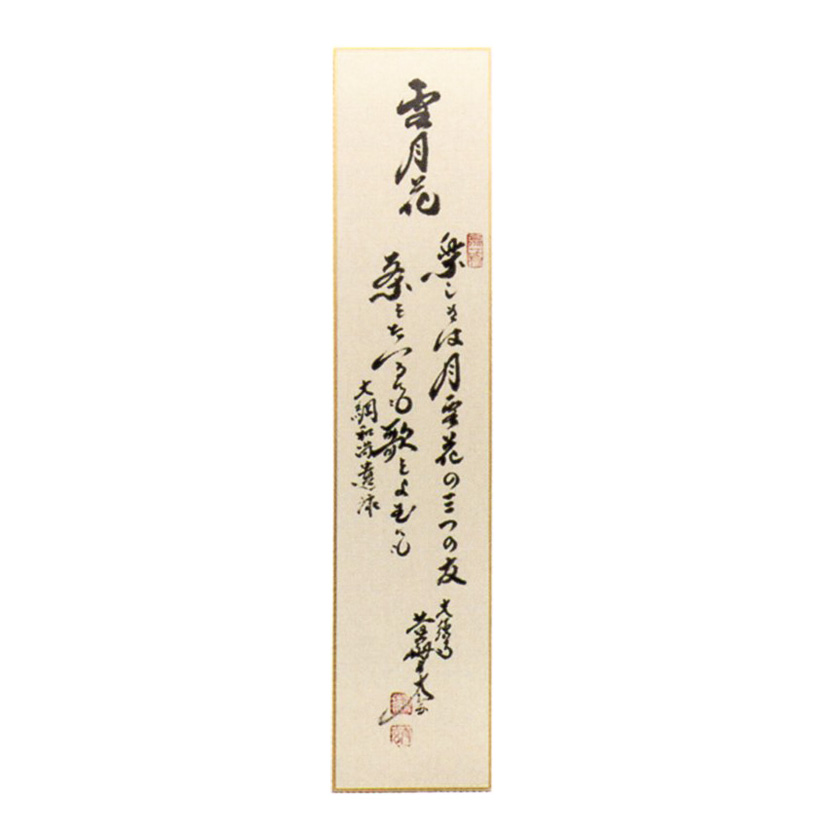 雪月花
楽しさは月雪花の三つの友
茶をたつるにも歌をよむにも
大綱和尚遺詠
大徳寺